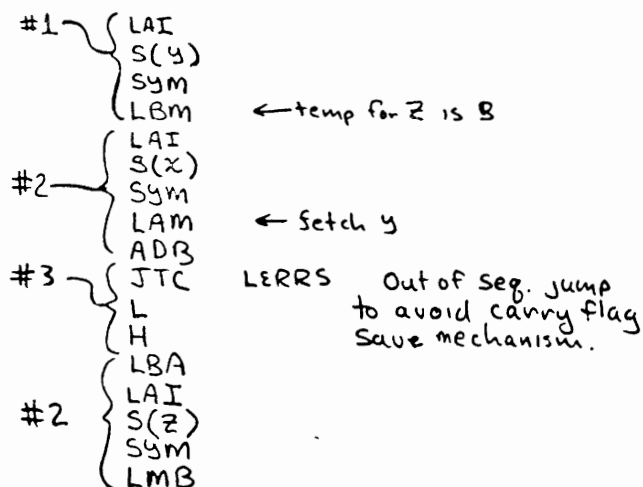 #1 LAI
S(y)
SYM
LBM ← temp for Z is B
LAI
#2 S(x)
SYM
LAM ← fetch y
ADB
#3 JTC LERRS Out of seq. jump
L to avoid carry flag
H save mechanism.
LBA
LAI
#2 S(Z)
SYM
LMB